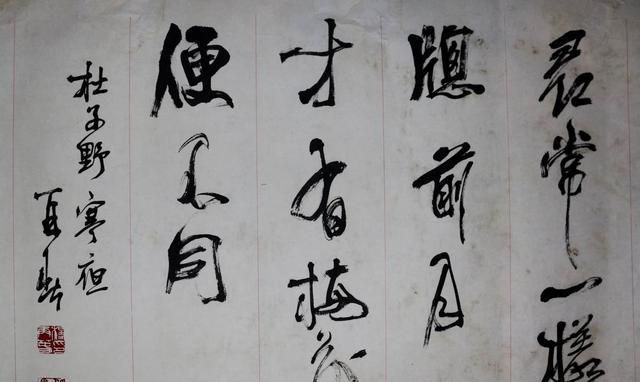 尋常一樣
牕前月
才有梅花
便不同
杜子野寒夜